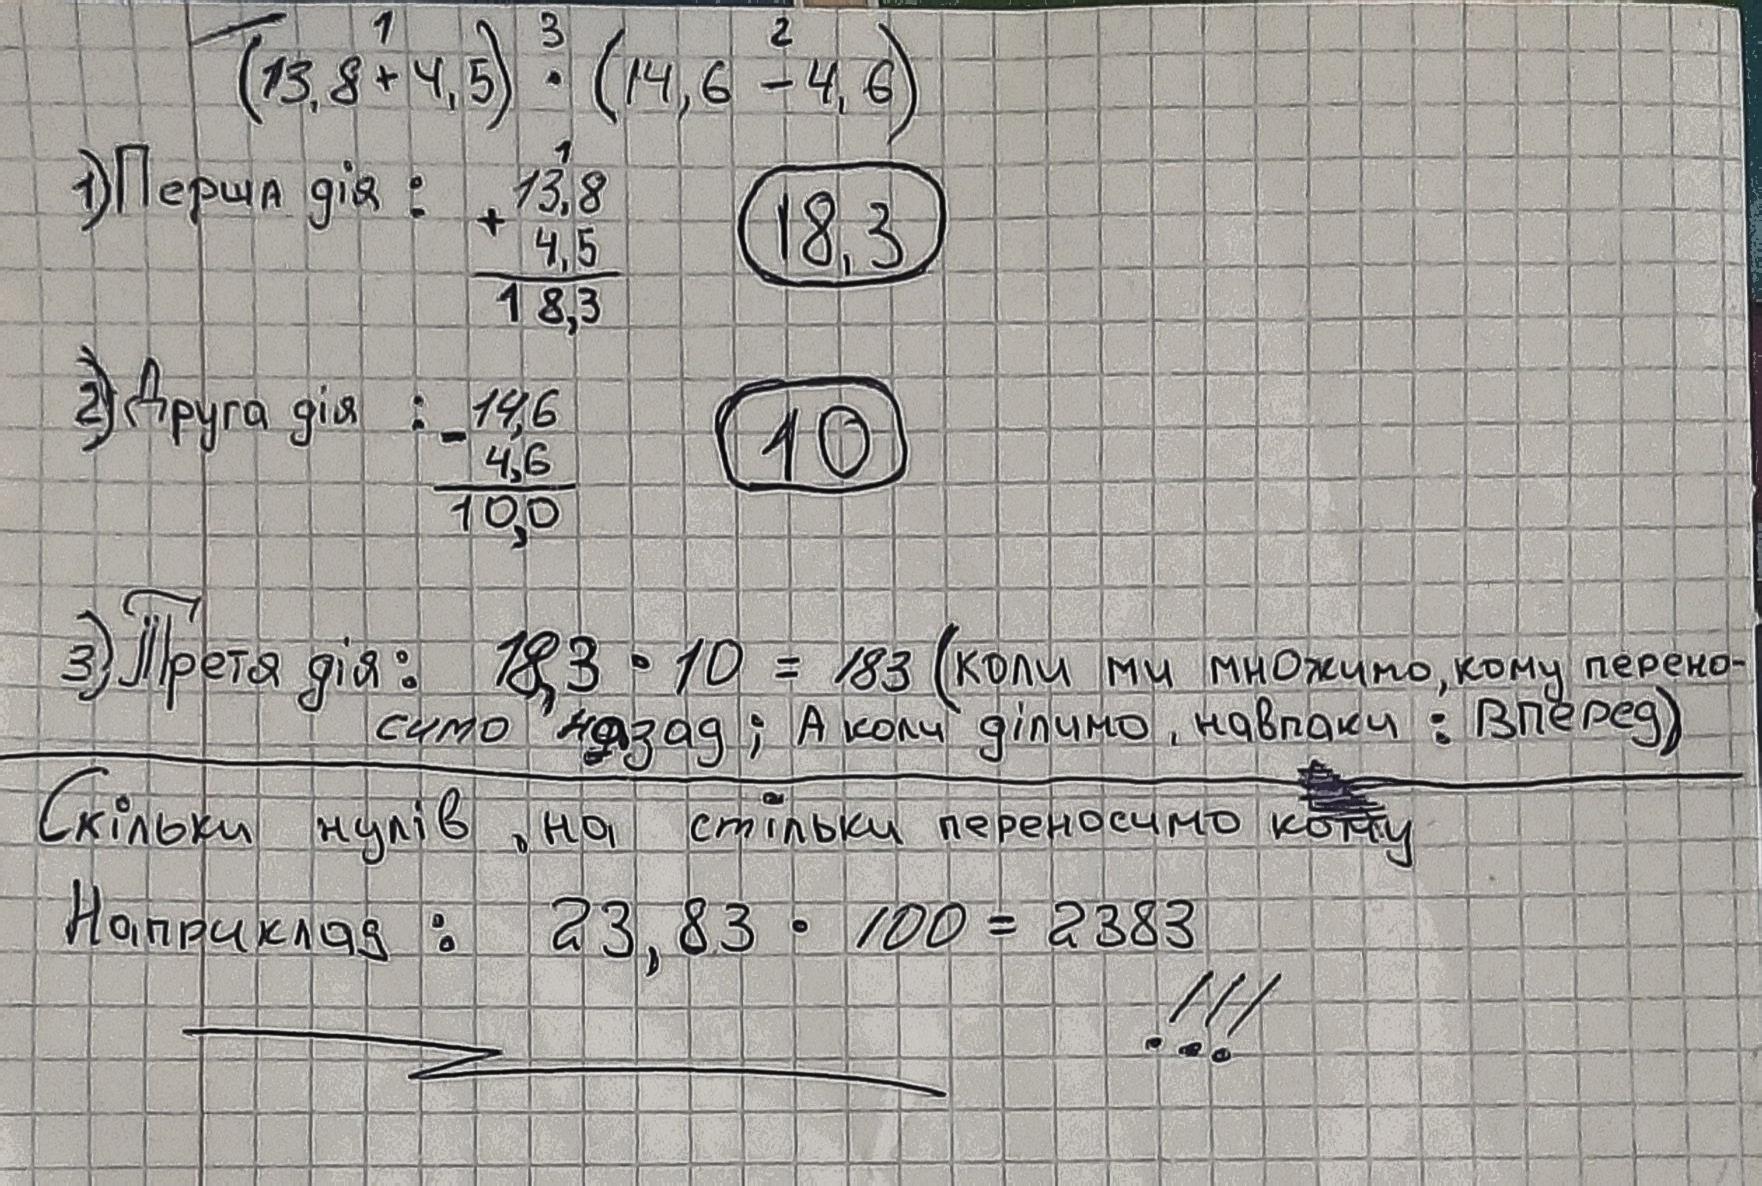 1 3 2
(13,8 + 4,5) · (14,6 - 4,6)
1) Перша дія : 1
13,8 18,3
+ 4,5
18,3
2) Друга дія : 14,6 10
- 4,6
10,0
3) Третя дія : 18,3 · 10 = 183 (коли ми множимо, кому перено-
симо назад; А коли ділимо, навпаки : Вперед)
Скільки нулів, на стільки переносимо кому
Наприклад : 23,83 · 100 = 2383
!!!